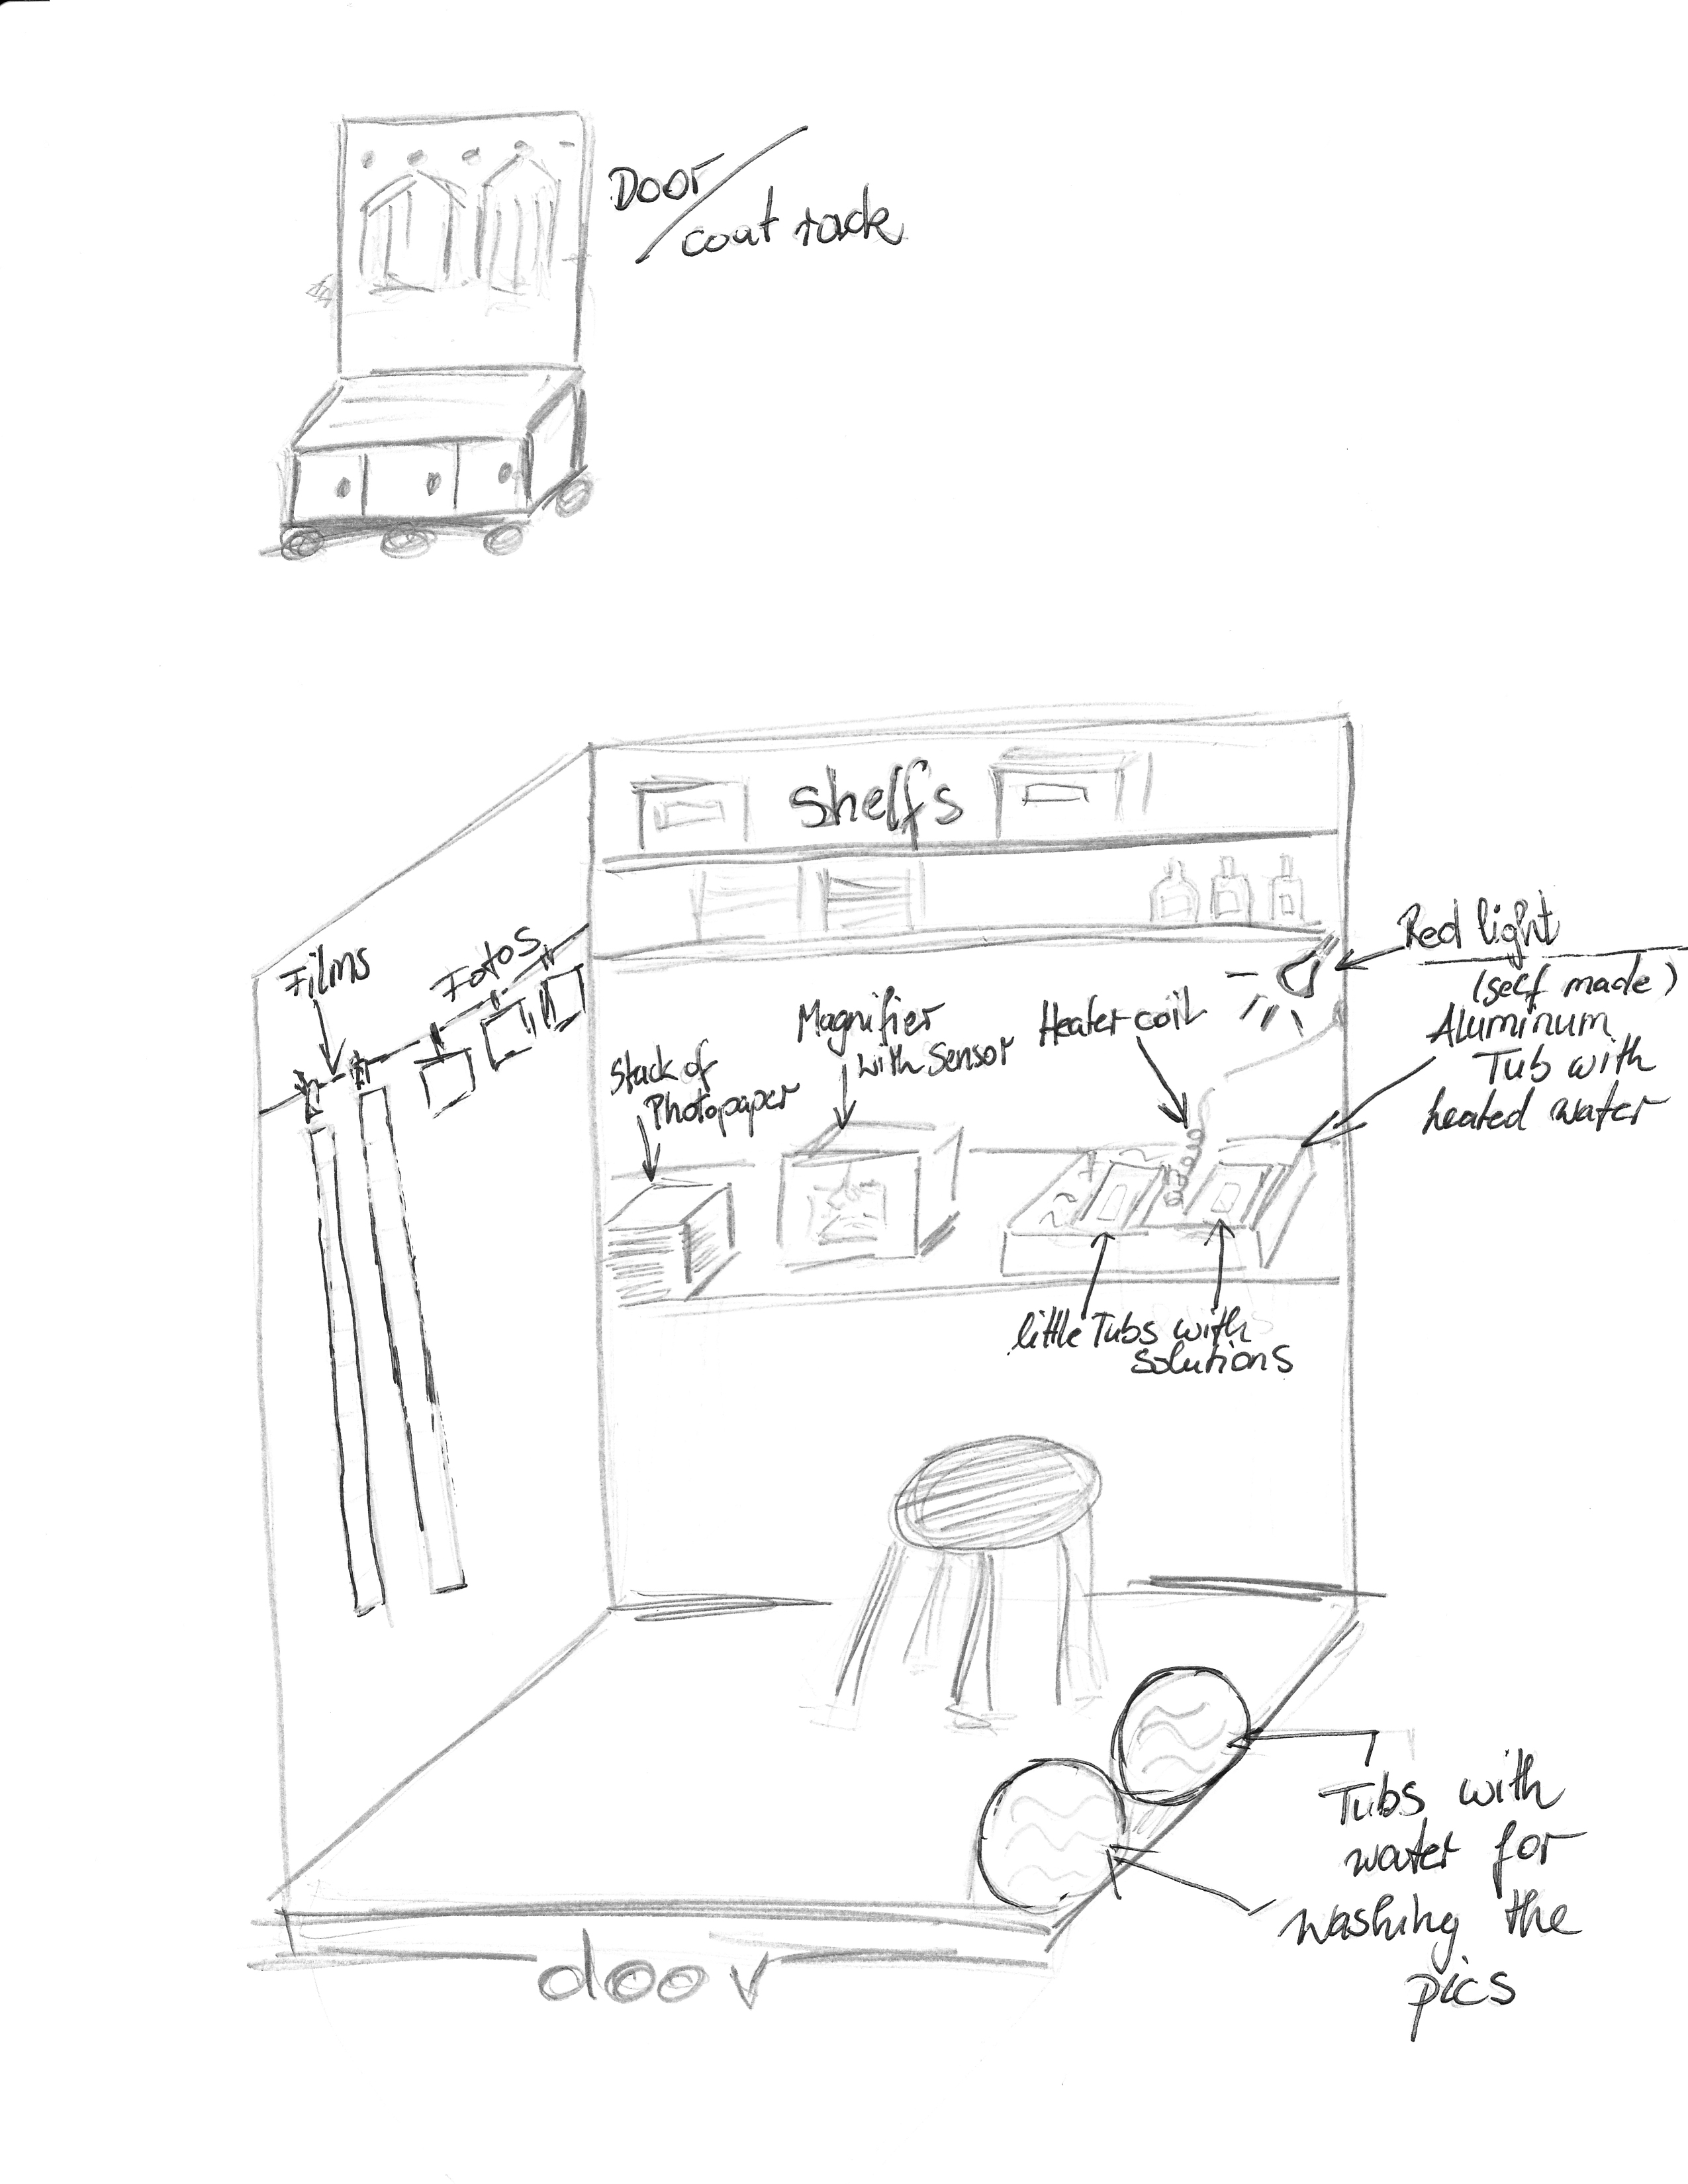 Door/
coat rack
Shelfs
Films
Fotos
Stack of
Photopaper
Magnifier
with Sensor
Heater coil
Red light
(self made)
Aluminum
Tub with
heated water
little Tubs with
solutions
Tubs with
water for
washing the
pics
door